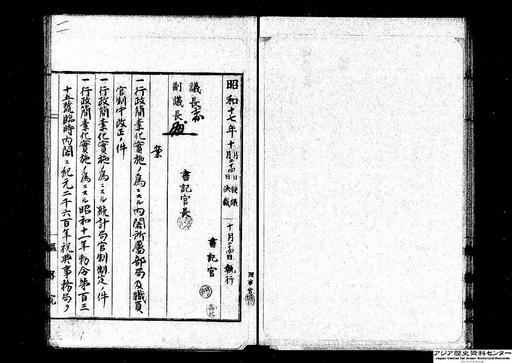 昭和十七年十月 日後議
十月 日決裁
十月 日執行
議長
副議長
書記官長
書記官
案
一行政簡素化實施ノ為ニスル内閣所屬部局及職員
官制中改正ノ件
一行政簡素化實施ノ為ニスル統計局官制制定ノ件
一行政簡素化實施ノ為ニスル昭和十一年勅令第百三
十五號臨時内閣ニ紀元二千六百年祝典事務局ヲ
アジア歴史資料センター
Japan Center for Asian Historical Records